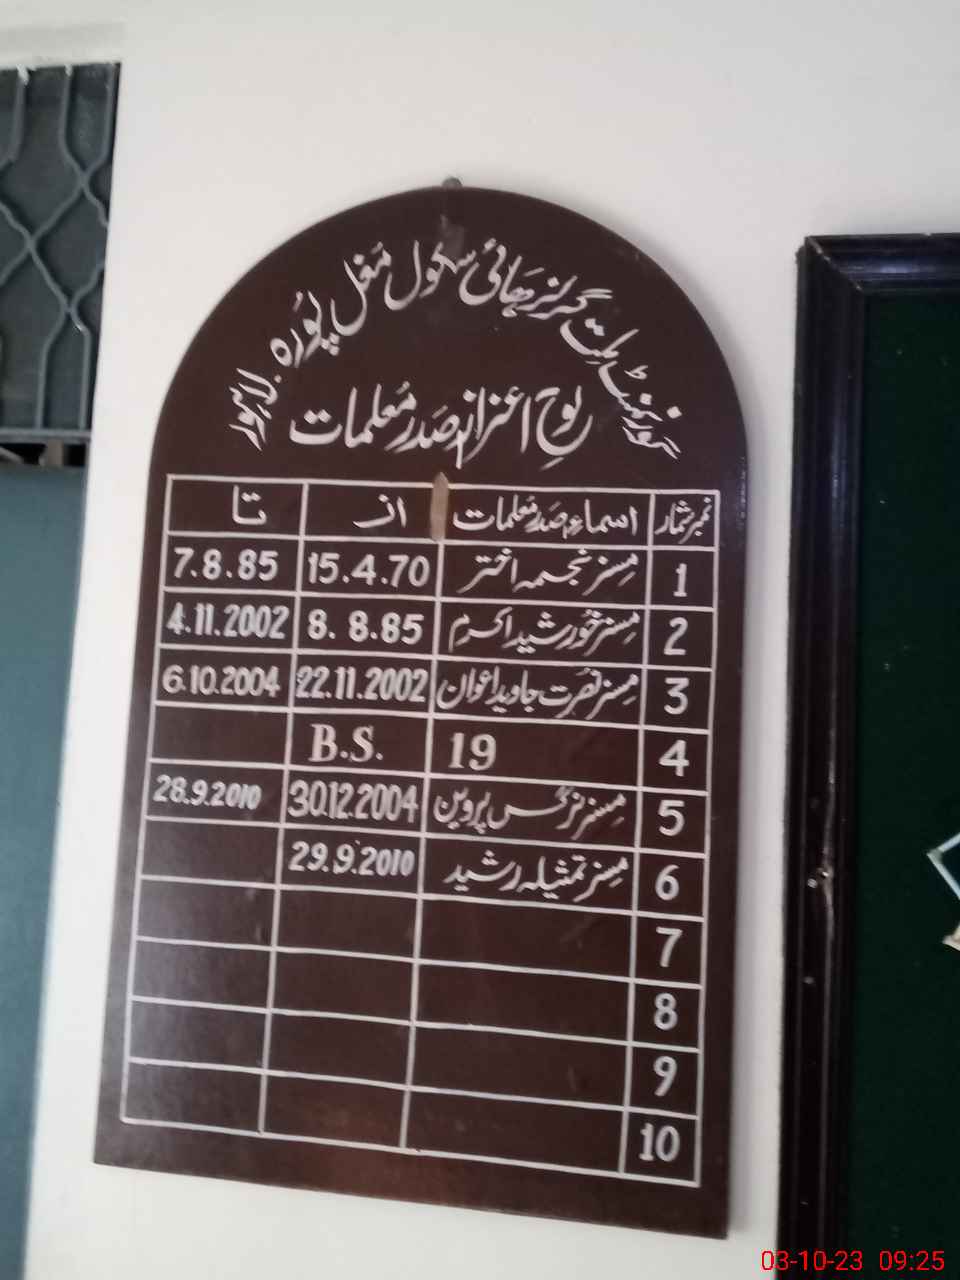 گورنمنٹ ملت گرلز ہائی سکول مغل پورہ۔ لاہور
لوحِ اعزاز صدر معلمات
نمبر شمار اسماء صدر معلمات از تا
1 مسز نجمہ اختر 15.4.70 7.8.85
2 مسز خورشید اکرم 8.8.85 4.11.2002
3 مسز نصرت جاوید اعوان 22.11.2002 6.10.2004
4 19 B.S.
5 مسز نرگس پروین 30.12.2004 28.9.2010
6 مسز تمثیلہ رشید 29.9.2010
7
8
9
10
03-10-23 09:25